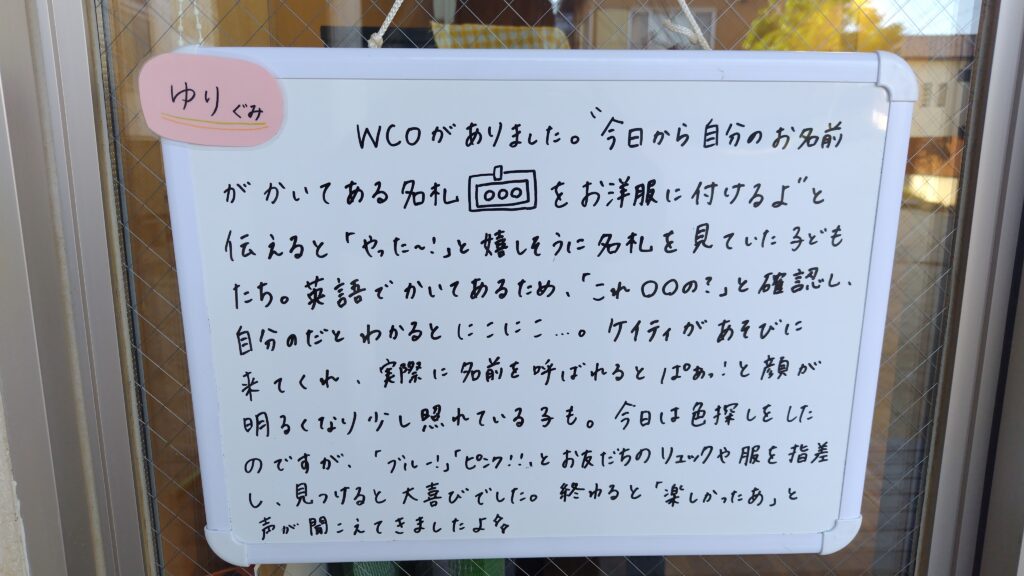 ゆりぐみ
WCOがありました。“今日から自分のお名前
がかいてある名札 ○○○ をお洋服に付けるよ”と
伝えると「やった～!」と嬉しそうに名札を見ていた子ども
たち。英語でかいてあるため、「これ○○の?」と確認し、
自分のだとわかるとにこにこ…。ケイティがあそびに
来てくれ、実際に名前を呼ばれるとぱぁっ!と顔が
明るくなり少し照れている子も。今日は色探しをした
のですが、「ブルー!」「ピンク!!」とお友だちのリュックや服を指差
し、見つけると大喜びでした。終わると「楽しかったあ」と
声が聞こえてきましたよ